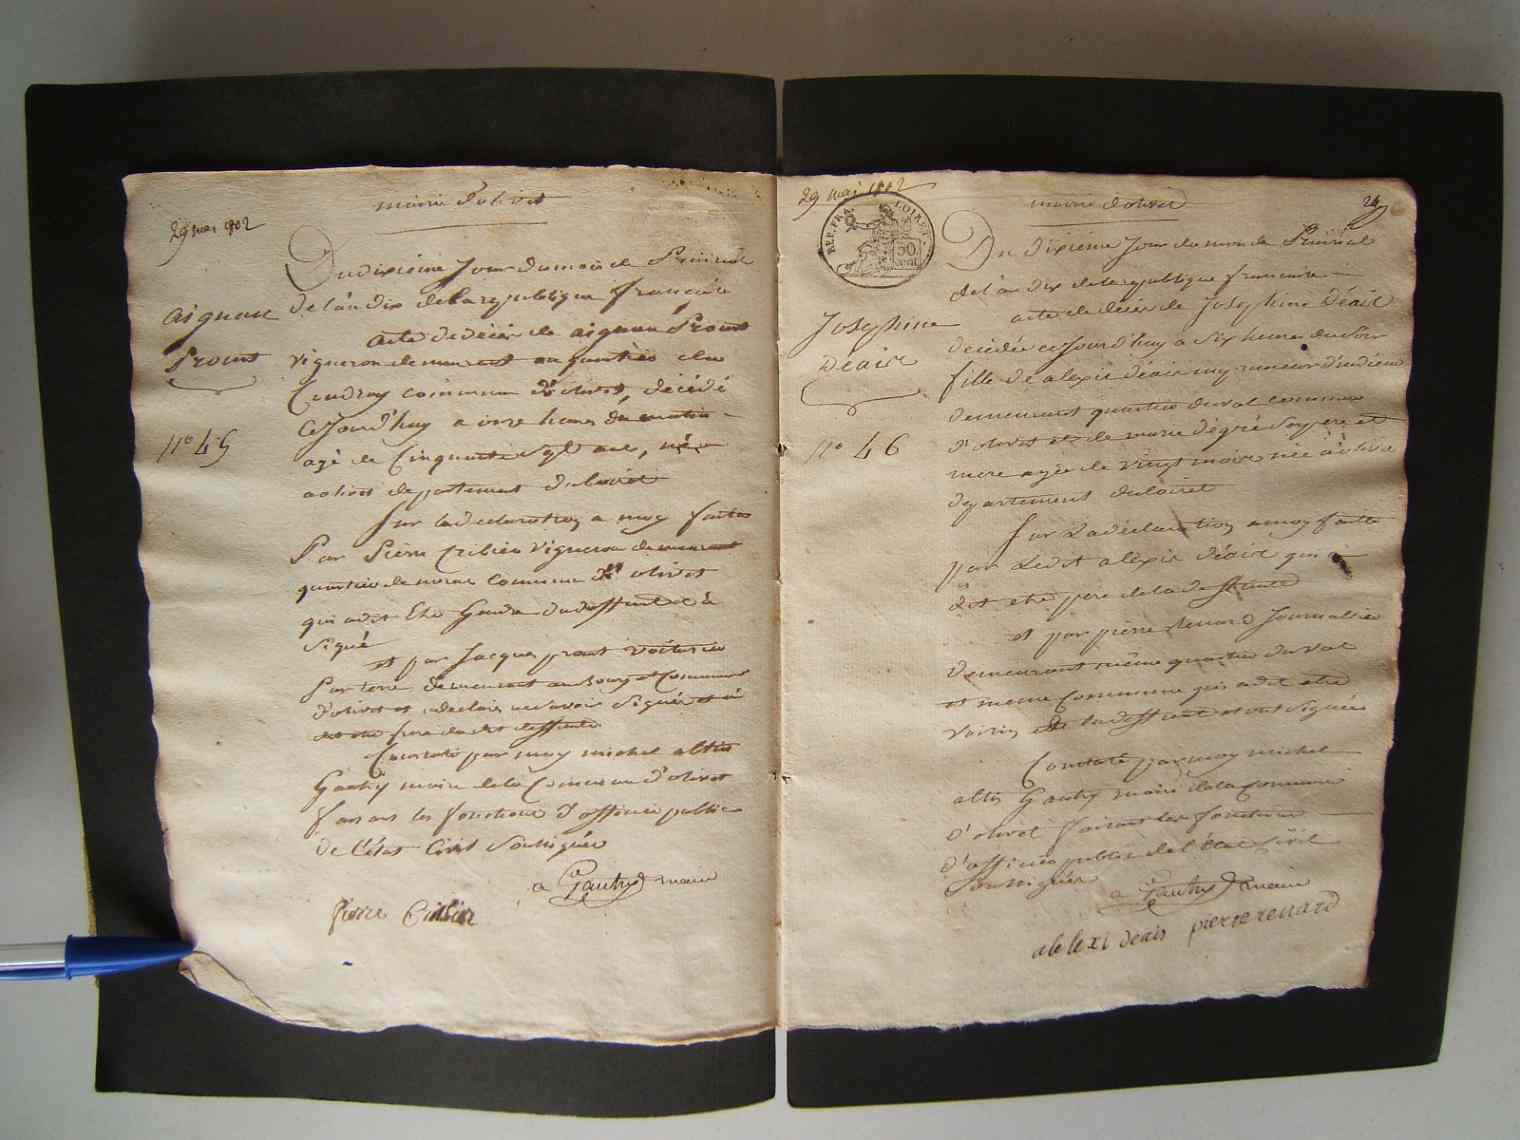 mairie d'olivet
29 mai 1802
Du dixième Jour du mois de Prairial
de l'an dix de la république françaite
aignan
Proust
acte de décès de aignan Proust
vigneron demeurant au quartier du
Coudray commune d'olivet, décédé
Cejourd'huy a onze heures du matin
n° 45
agé de Cinquante sept ans, né
a olivet departement du loiret
Sur la declaration a moy faite
Par Pierre vigneron demeurant
quartier de commune d'olivet
qui a dit Etre du deffunt et a
Signé
et par Jacques proust voiturier
Par terre demeurant au Bourg et Commune
d'olivet et declaré ne savoir Signé et a
dit etre frere dudit deffunt
Constaté par moy michel altin
Gauthy maire de la Commune d'olivet
faisant les fonctions d'officier public
de l'état Civil Soussigné
a Gauthy maire
Pierre
29 mai 1802
mairie d'olivet
24
REP. FRA. LOIRET.
50
cent.
Du dixième Jour du mois de Prairial
de l'an dix de la republique françaite
Josephine
Déair
acte de décès de Josephine Déair
decédée cejourd'huy a six heures du soir
fille de alexis déair
demeurant quartier du val commune
n° 46
d'olivet et de marie ses pere et
mere agée de vingt mois née a olivet
departement du loiret
Sur la déclaration a moy faitte
par Ledit alexis déair qui a
dit etre pere de la deffunte
et par pierre Renard Journallier
demeurant même quartier du val
et meme Commune qui a dit etre
voisin de la deffunte et ont Signé
Constaté par moy michel
altin Gauthy maire de la Commune
d'olivet faisant les fonctions
d'officier public de l'état Civil
Soussigné
a Gauthy maire
alelexi deair pierre renard